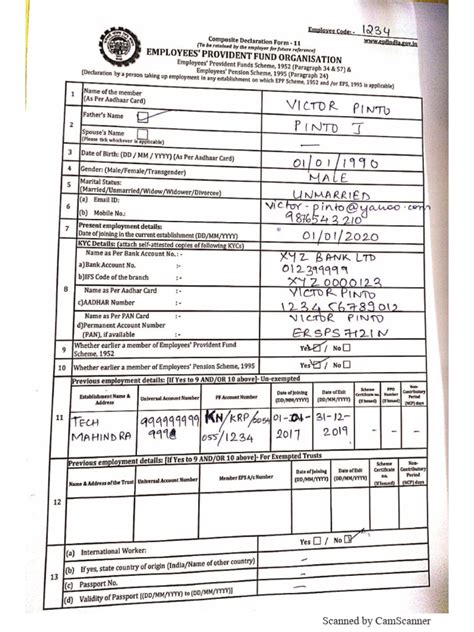 Employee Code:- 1234
www.epfindia.gov.in
Composite Declaration Form - 11
(To be retained by the employer for future reference)
EMPLOYEES' PROVIDENT FUND ORGANISATION
Employees' Provident Funds Scheme, 1952 (Paragraph 34 & 57) &
Employees' Pension Scheme, 1995 (Paragraph 24)
(Declaration by a person taking up employment in any establishment on which EPF Scheme, 1952 and /or EPS, 1995 is applicable)
1 Name of the member (As Per Aadhaar Card) VICTOR PINTO
2 Father's Name ☑ PINTO J
Spouse's Name ☐
(Please tick whichever is applicable)
3 Date of Birth: (DD / MM / YYYY) (As Per Aadhaar Card) 01/01/1990
4 Gender: (Male/Female/Transgender) MALE
5 Marital Status: (Married/Unmarried/Widow/Widower/Divorcee) UNMARRIED
6 (a) Email ID: victor-pinto@yahoo.com
(b) Mobile No.: 9876543210
7 Present employment details:
Date of joining in the current establishment (DD/MM/YYYY) 01/01/2020
8 KYC Details: (attach self-attested copies of following KYCs)
Name as Per Bank Account No. :- XYZ BANK LTD
a)Bank Account No. :- 012399999
b)IFS Code of the branch :- XYZ0000123
Name as Per Aadhar Card :- VICTOR PINTO
c)AADHAR Number :- 123456789012
Name as Per PAN Card :- VICTOR PINTO
d)Permanent Account Number (PAN), if available :- ERSPS7121N
9 Whether earlier a member of Employees' Provident Fund Scheme, 1952 Yes☑ / No☐
10 Whether earlier a member of Employees' Pension Scheme, 1995 Yes☑ / No☐
11 Previous employment details: [If Yes to 9 AND/OR 10 above]- Un-exempted
Establishment Name & Address
Universal Account Number
PF Account Number
Date of Joining (DD/MM/YYYY)
Date of Exit (DD/MM/YYYY)
Scheme Certificate No. (if issued)
PPO Number (if issued)
Non-Contributory Period (NCP) days
TECH MAHINDRA
999999999 999
KN/KRP/0054 055/1234
2017
31-12-2019
12 Previous employment details: [If Yes to 9 AND/OR 10 above]- For Exempted Trusts
Name & Address of the Trust
Universal Account Number
Member EPS A/c Number
Date of Joining (DD/MM/YYYY)
Date of Exit (DD/MM/YYYY)
Scheme Certificate no. (if Issued)
Non-Contributory Period (NCP) days
13 (a) International Worker: Yes ☐ / No ☑
(b) If yes, state country of origin (India/Name of other country)
(c) Passport No.
(d) Validity of Passport [(DD/MM/YYYY) to (DD/MM/YYYY)]
Scanned by CamScanner